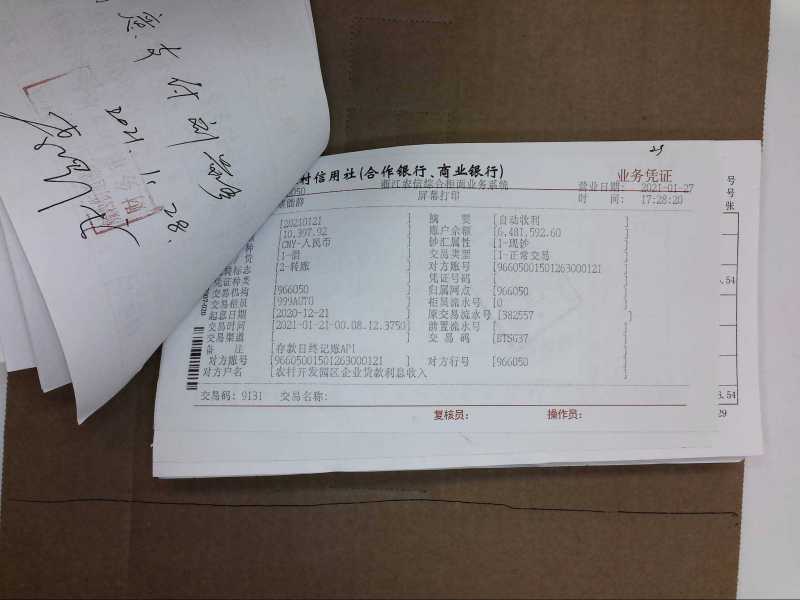 应支付利息
2021.1.28.
25
村信用社(合作银行、商业银行)
业务凭证
浙江农信综合柜面业务系统
屏幕打印
营业日期: 2021-01-27
时 间: 17:28:20
[20210121 ] 摘 要 [自动收利
[10,397.92 ] 账户余额 [6,481,592.60
[CNY-人民币 ] 钞汇属性 [1-现钞
[1-借 ] 交易类型 [1-正常交易
[2-转账 ] 对方账号 [9660500150126300012​1
凭证种类 [ ] 凭证号码 [
交易机构 [966050 ] 归属网点 [966050
交易柜员 [999AUTO ] 柜员流水号 [0
起息日期 [2020-12-21 ] 原交易流水号 [382557 ]
交易时间 [2021-01-21-00.08.12.3750] 前置流水号 [
交易渠道 [ ] 交 易 码 [BTSG37
备 注 [存款日终记账API
对方账号 [966050015012630001​21 ] 对方行号 [966050
对方户名 [农村开发园区企业贷款利息收入 ]
交易码: 9131 交易名称:
复核员: 操作员:
号
号
张
.54
3.54
29